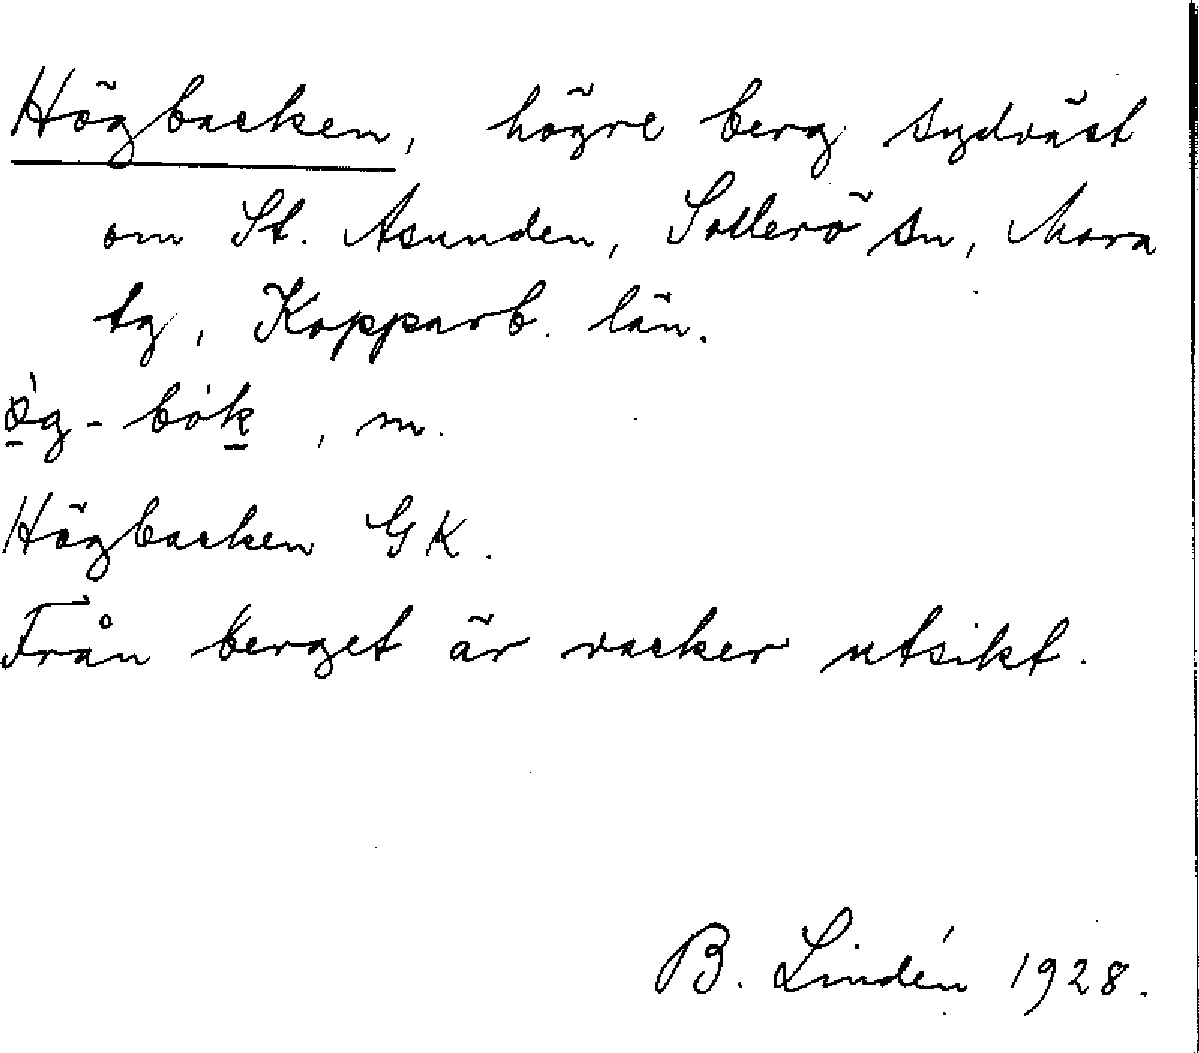 Högbacken, högre berg sydväst
om St. Asunden, Sollerö sn, Mora
tg, Kopparb. län.
m.
Högbacken GK.
Från berget är vacker utsikt.
B. Lindén 1928.